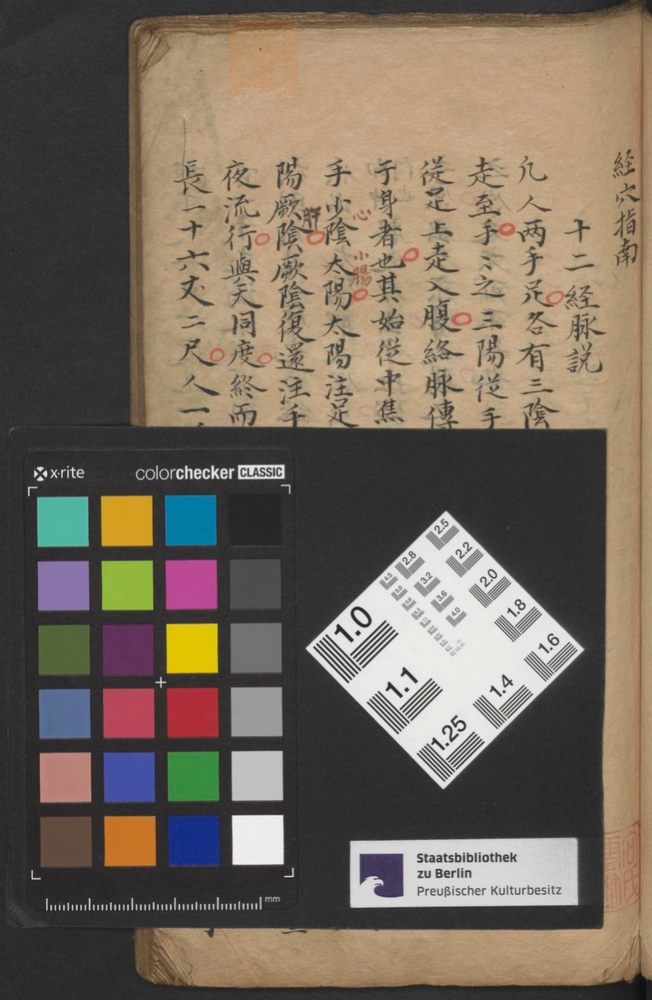 經穴指南
十二經脉說
凢人两手足各有三陰
走至手〻之三陽從手
從足上走入腹絡脉傳
于身者也其始從中焦
心 小腸
手少陰太陽太陽注足
肝
陽厥陰厥陰復還注手
夜流行與天同度終而
長一十六丈二尺人一
x·rite colorchecker CLASSIC
mm
2.5
2.8 2.2
4.5 3.2 2.0
5.0 3.6 1.8
4.0
1.0 1.6
1.1 1.4
1.25
Staatsbibliothek
zu Berlin
Preußischer Kulturbesitz